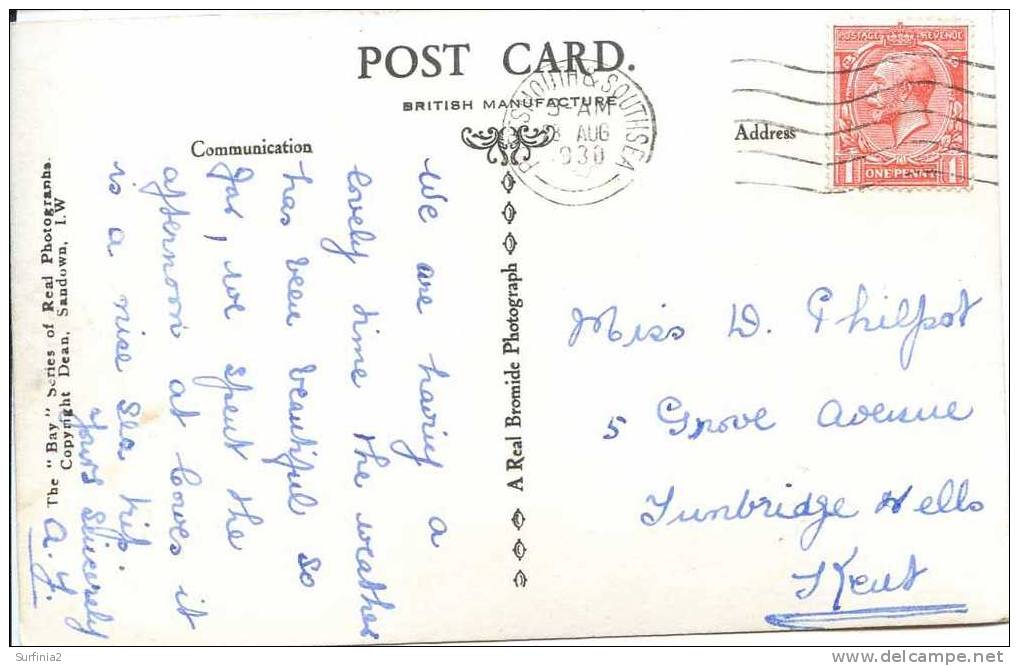 POST CARD.
BRITISH MANUFACTURE
Communication
Address
POSTAGE REVENUE
1 ONE PENNY 1
PORTSMOUTH & SOUTHSEA
AM
AUG
930
We are having a
lovely time the weather
has been beautiful so
far, we spent the
afternoon at Cowes it
is a nice sea trip.
Yours sincerely
A. Y.
The "Bay" Series of Real Photographs.
Copyright Dean, Sandown, I.W
A Real Bromide Photograph
Miss D. Philpot
5 Grove Avenue
Tunbridge Wells
Kent
Surfinia2
delcampe.net